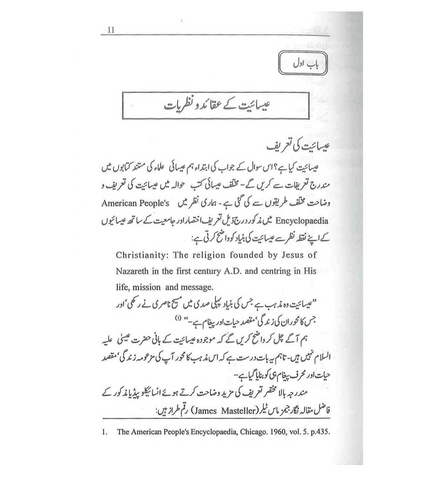 11
باب اول
عیسائیت کے عقائد و نظریات
عیسائیت کی تعریف
عیسائیت کیا ہے؟ اس سوال کے جواب کی ابتداء ہم عیسائی علماء کی مستند کتابوں میں
مندرج تعریفات سے کریں گے۔ مختلف عیسائی کتب حوالہ میں عیسائیت کی تعریف و
وضاحت مختلف طریقوں سے کی گئی ہے۔ ہماری نظر میں American People's
Encyclopaedia میں مذکور درج ذیل تعریف اختصار اور جامعیت کے ساتھ عیسائیوں
کے اپنے نقطہ نظر سے عیسائیت کی بنیاد کو واضح کرتی ہے:
Christianity: The religion founded by Jesus of
Nazareth in the first century A.D. and centring in His
life, mission and message.
"عیسائیت وہ مذہب ہے جس کی بنیاد پہلی صدی میں مسیح ناصری نے رکھی' اور
جس کا محور ان کی زندگی' مقصد حیات اور پیغام ہے۔" (۱)
ہم آگے چل کر واضح کریں گے کہ موجودہ عیسائیت کے بانی حضرت عیسیٰ علیہ
السلام نہیں۔ تاہم یہ بات درست ہے کہ اس مذہب کا محور آپ کی مزعومہ زندگی' مقصد
حیات اور محرف پیغام ہی کو بنایا گیا ہے۔
مندرجہ بالا مختصر تعریف کی مزید وضاحت کرتے ہوئے انسائیکلوپیڈیا مذکور کے
فاضل مقالہ نگار جیمز ماس ٹیلر (James Masteller) رقم طراز ہیں:
1. The American People's Encyclopaedia, Chicago. 1960, vol. 5. p.435.